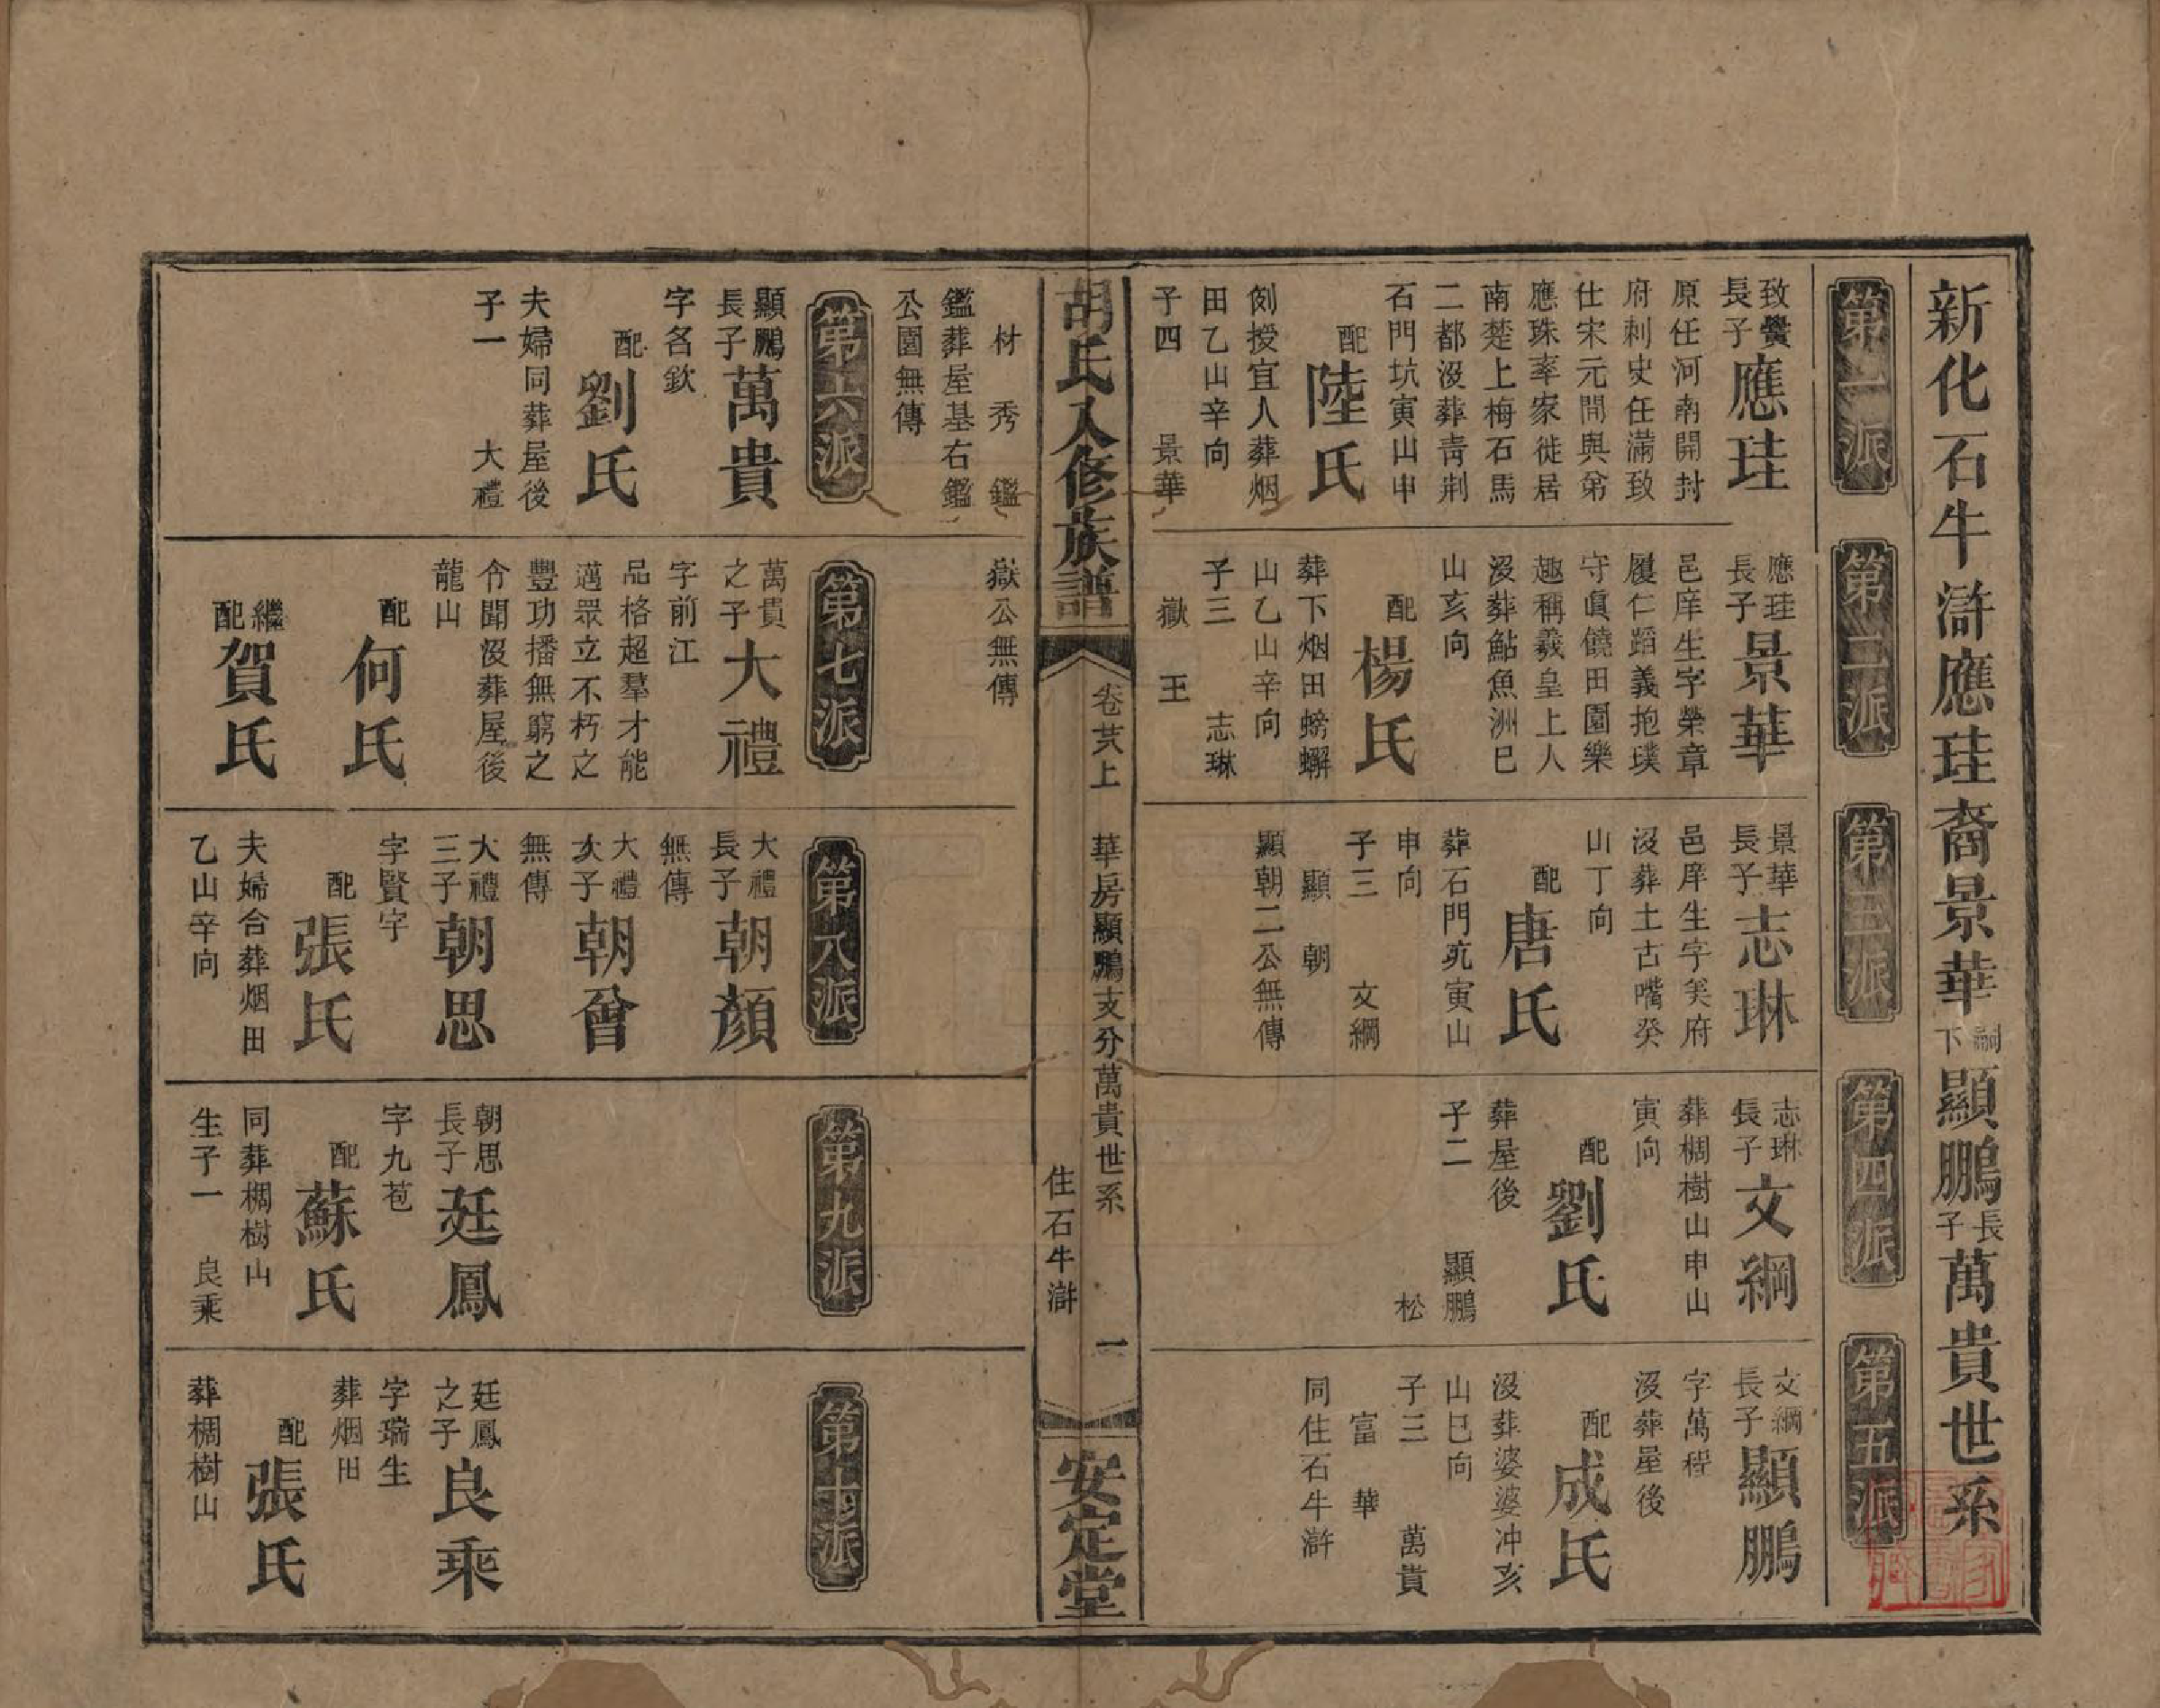 新化石牛滸應珪裔景華嗣下顯鵬長子萬貴世系
第一派
致黌長子應珪
原任河南開封
府刺史任滿致
仕宋元間與弟
應珠率家徙居
南楚上梅石馬
二都沒葬靑荆
石門坑寅山申
配陸氏
例授宜人葬烟
田乙山辛向
子四 景華
材 秀 鑑
鑑葬屋基右鑑
公園無傳
第二派
應珪長子景華
邑庠生字榮章
履仁蹈義抱璞
守眞饒田園樂
趣稱羲皇上人
沒葬鮎魚洲巳
山亥向
配楊氏
葬下烟田螃蠏
山乙山辛向
子三 志琳
嶽 王
嶽公無傳
第三派
景華長子志琳
邑庠生字美府
沒葬土古嘴癸
山丁向
配唐氏
葬石門坑寅山
申向
子三 文綱
顯 朝
顯朝二公無傳
第四派
志琳長子文綱
葬椆樹山申山
寅向
配劉氏
葬屋後
子二 顯鵬
松
第五派
文綱長子顯鵬
字萬程
沒葬屋後
配成氏
沒葬婆婆冲亥
山巳向
子三 萬貴
富 華
同住石牛滸
胡氏八修族譜
卷廿八上 華房顯鵬支分萬貴世系 一
住石牛滸
安定堂
第六派
顯鵬長子萬貴
字名欽
配劉氏
夫婦同葬屋後
子一 大禮
第七派
萬貴之子大禮
字前江
品格超羣才能
邁眾立不朽之
豐功播無窮之
令聞沒葬屋後
龍山
配何氏
繼配賀氏
第八派
大禮長子朝顏
無傳
大禮次子朝曾
無傳
大禮三子朝思
字賢字
配張氏
夫婦合葬烟田
乙山辛向
第九派
朝思長子廷鳳
字九苞
配蘇氏
同葬椆樹山
生子一 良乘
第十派
廷鳳之子良乘
字瑞生
葬烟田
配張氏
葬椆樹山